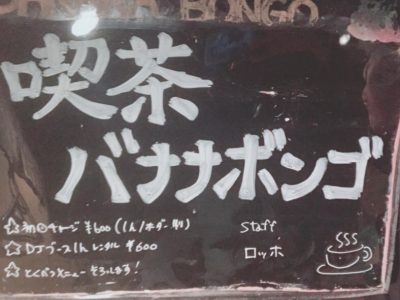 BONGO
喫茶
バナナボンゴ
☆初回チャージ ¥600 (1人/オーダー別)
☆DJブース1h レンタル ¥600
☆とくべつメニュー そろってます!
Staff
ロッホ